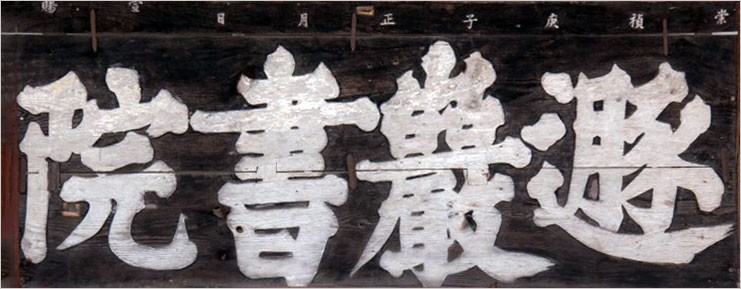 崇禎庚子正月日宣賜
遯巖書院